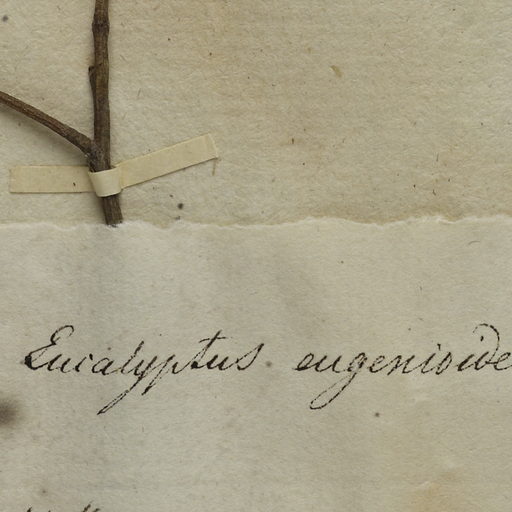 Eucalyptus eugenioide